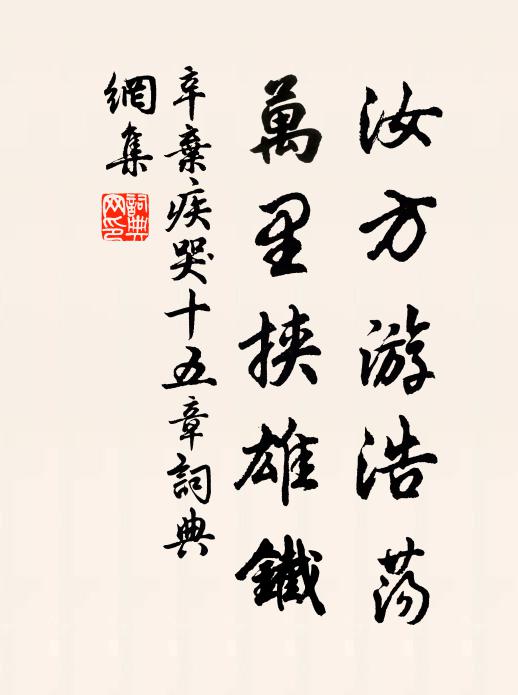 汝方游浩荡
萬里挾雄鐵
辛棄疾哭十五章詞典
網集
詞典網印